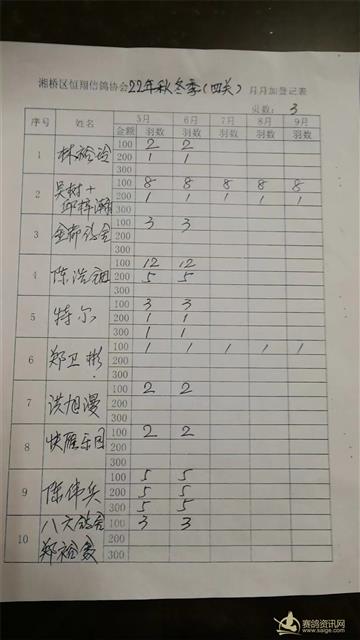 湘桥区恒翔信鸽协会22年秋冬季(四关)月月加登记表
页数: 3
序号 姓名 5月 6月 7月 8月 9月
金额 羽数 羽数 羽数 羽数 羽数
1 100 2 2
200 1 1
300
2 吴树+ 100 8 8 8 8 8
200 1 1 1 1 1
300
3 100 3 3
200
300
4 100 12 12
陈浩 200 5 5
300
5 特尔 100 3 3
200 1 1
300 1 1
6 郑卫彬 100 1 1 1 1 1
200
300
7 洪旭漫 100 2 2
200
300
8 快雁乐园 100 2 2
200
300
9 陈伟兵 100 5 5
200 5 5
300 5 5
10 八六鸽舍 100 3 3
200
郑 300
赛鸽资讯网
www.saige.com